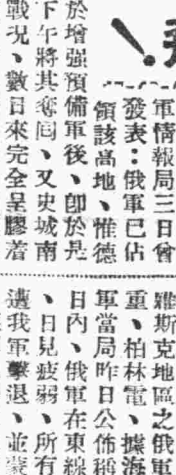 ！
軍情報局三日曾
發表：俄軍已佔
領該高地、惟德
於增强預備軍後、卽於是
下午將其奪囘、又史城南
戰況、數日來完全呈膠着
維斯克地區之俄軍
重、柏林電、據海
軍當局昨日公佈稱
日內、俄軍在東線
、日見疲弱、所有
遭我軍擊退、並蒙